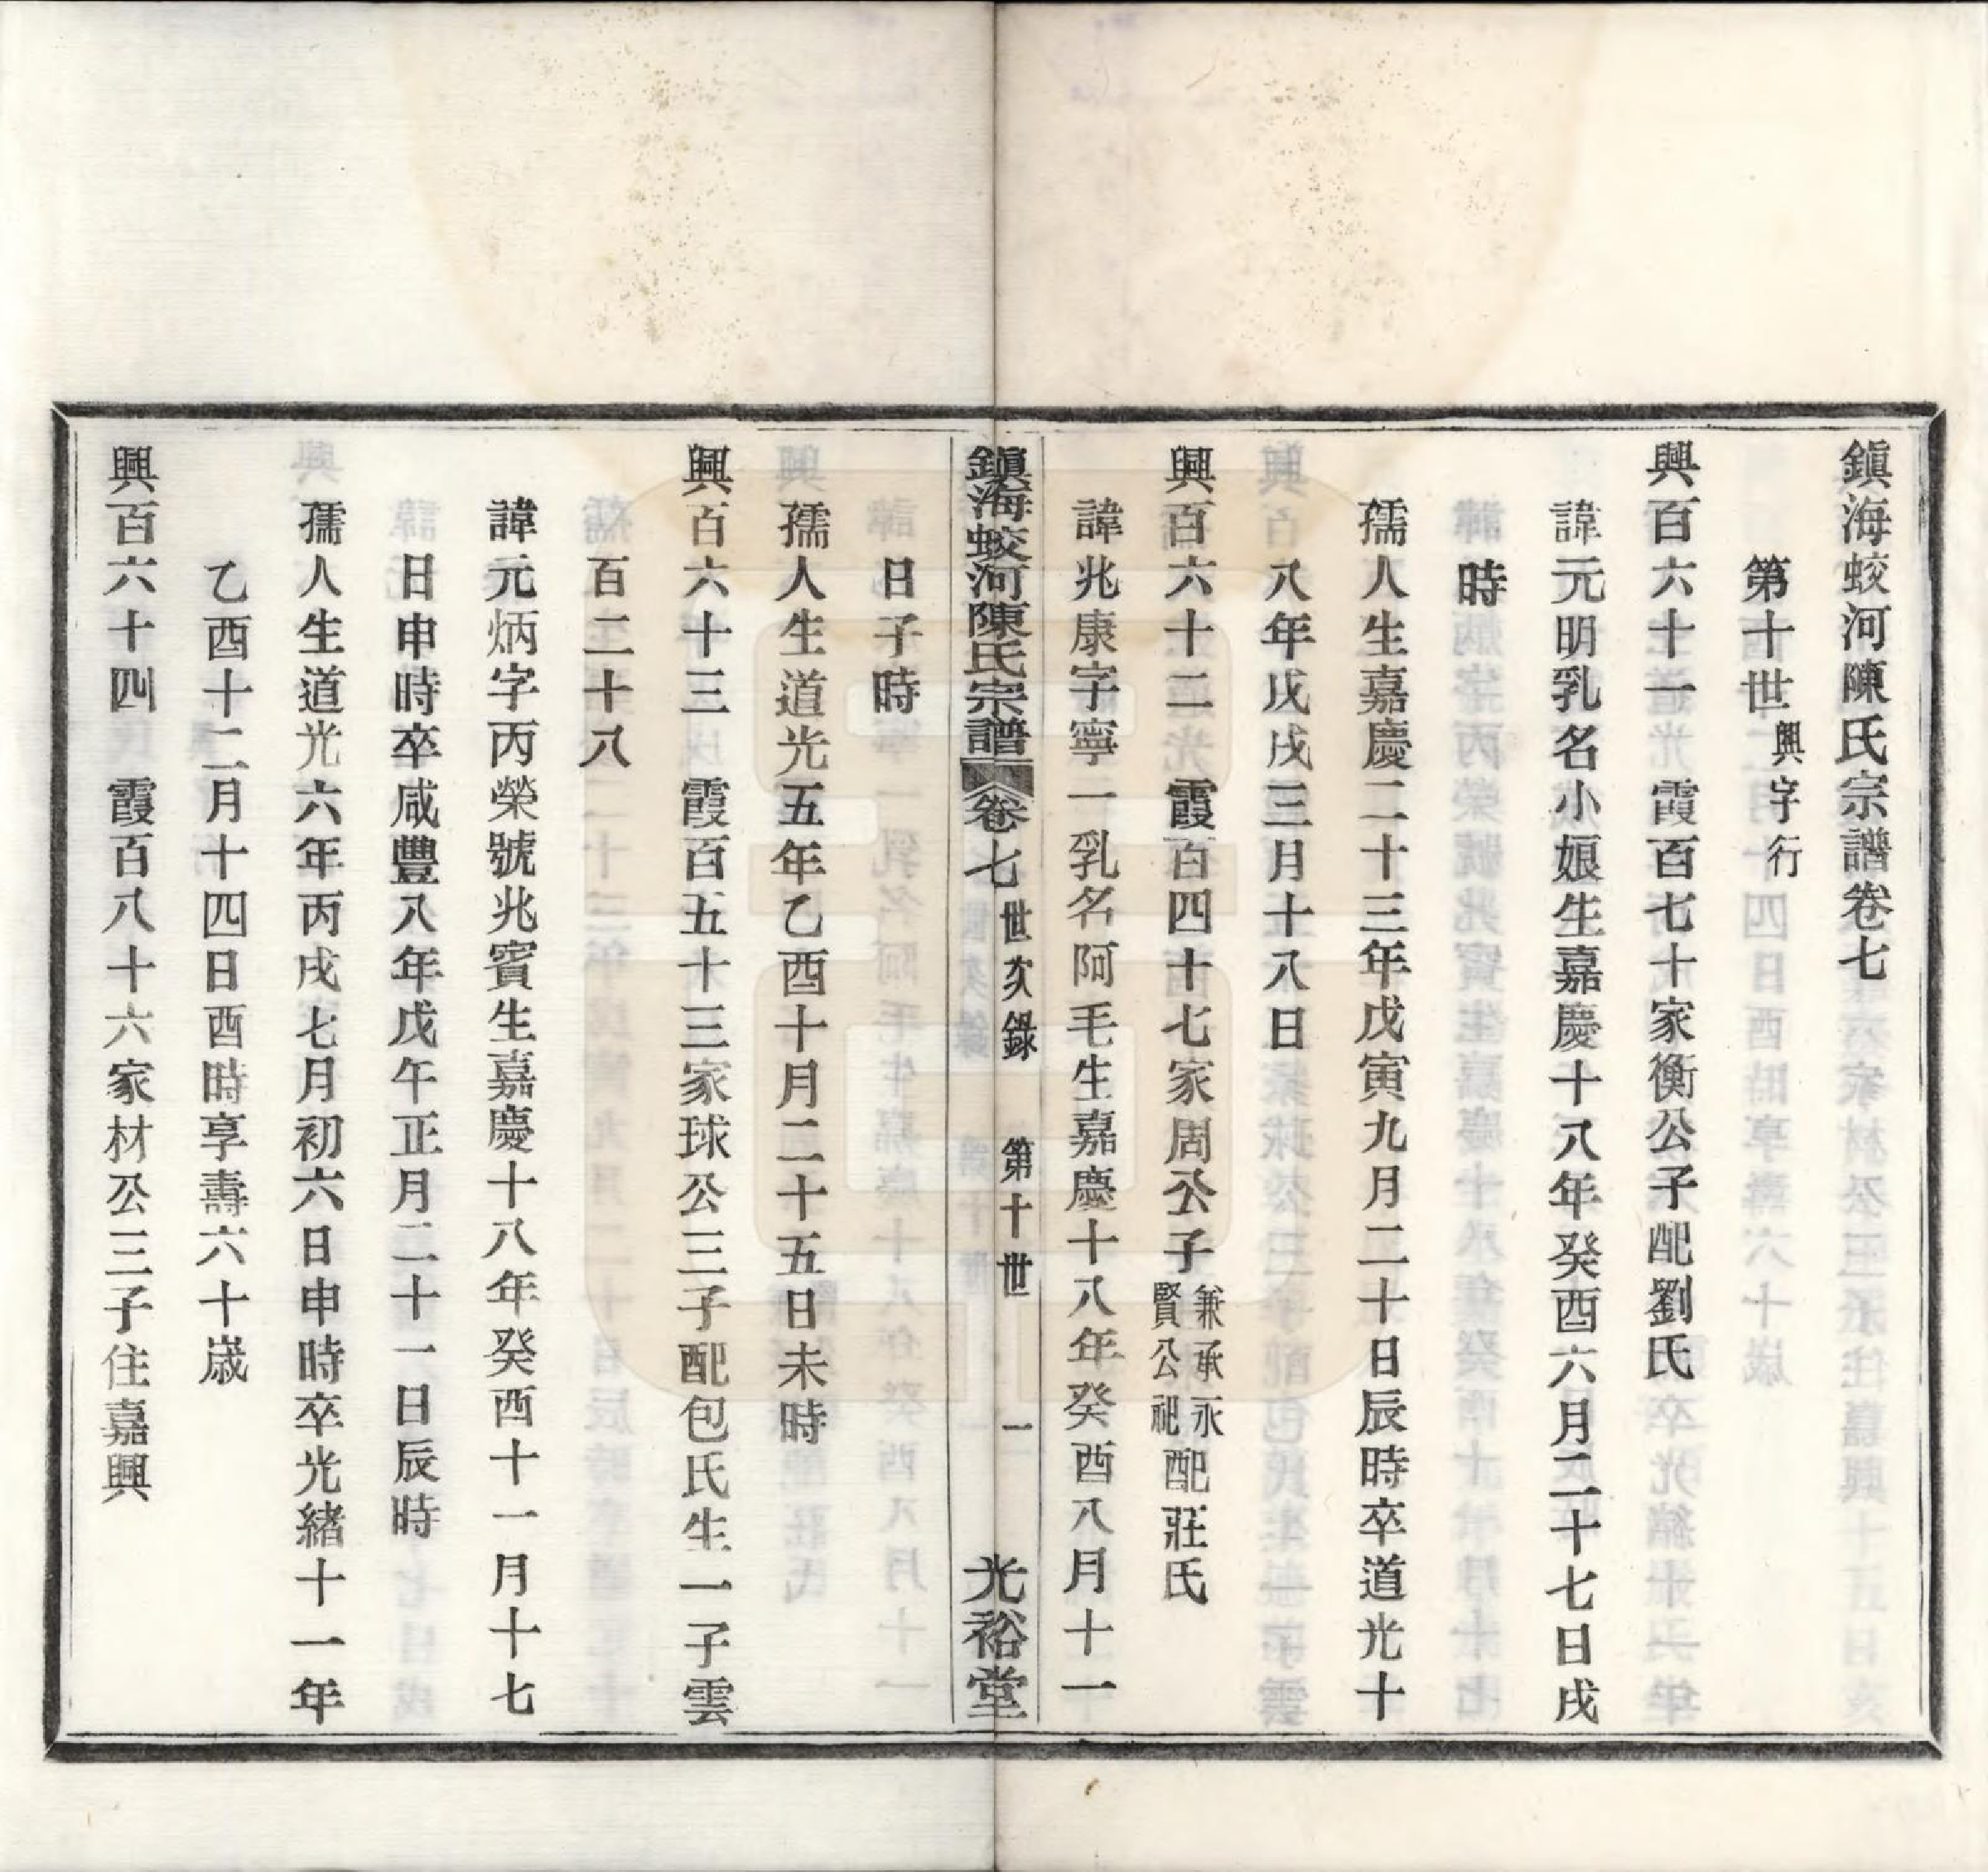 鎭海蛟河陳氏宗譜卷七
第十世興字行
興百六十一　霞百七十家衡公子配劉氏
諱元明乳名小娘生嘉慶十八年癸酉六月二十七日戌
時
孺人生嘉慶二十三年戊寅九月二十日辰時卒道光十
八年戊戌三月十八日
興百六十二　霞百四十七家周公子兼承永賢公祀配莊氏
諱兆康字寧一乳名阿毛生嘉慶十八年癸酉八月十一
鎭海蛟河陳氏宗譜　卷七　世次錄　第十世　一　光裕堂
日子時
孺人生道光五年乙酉十月二十五日未時
興百六十三　霞百五十三家球公三子配包氏生一子雲
百二十八
諱元炳字丙榮號兆賓生嘉慶十八年癸酉十一月十七
日申時卒咸豐八年戊午正月二十一日辰時
孺人生道光六年丙戌七月初六日申時卒光緒十一年
乙酉十二月十四日酉時享壽六十歲
興百六十四　霞百八十六家材公三子住嘉興